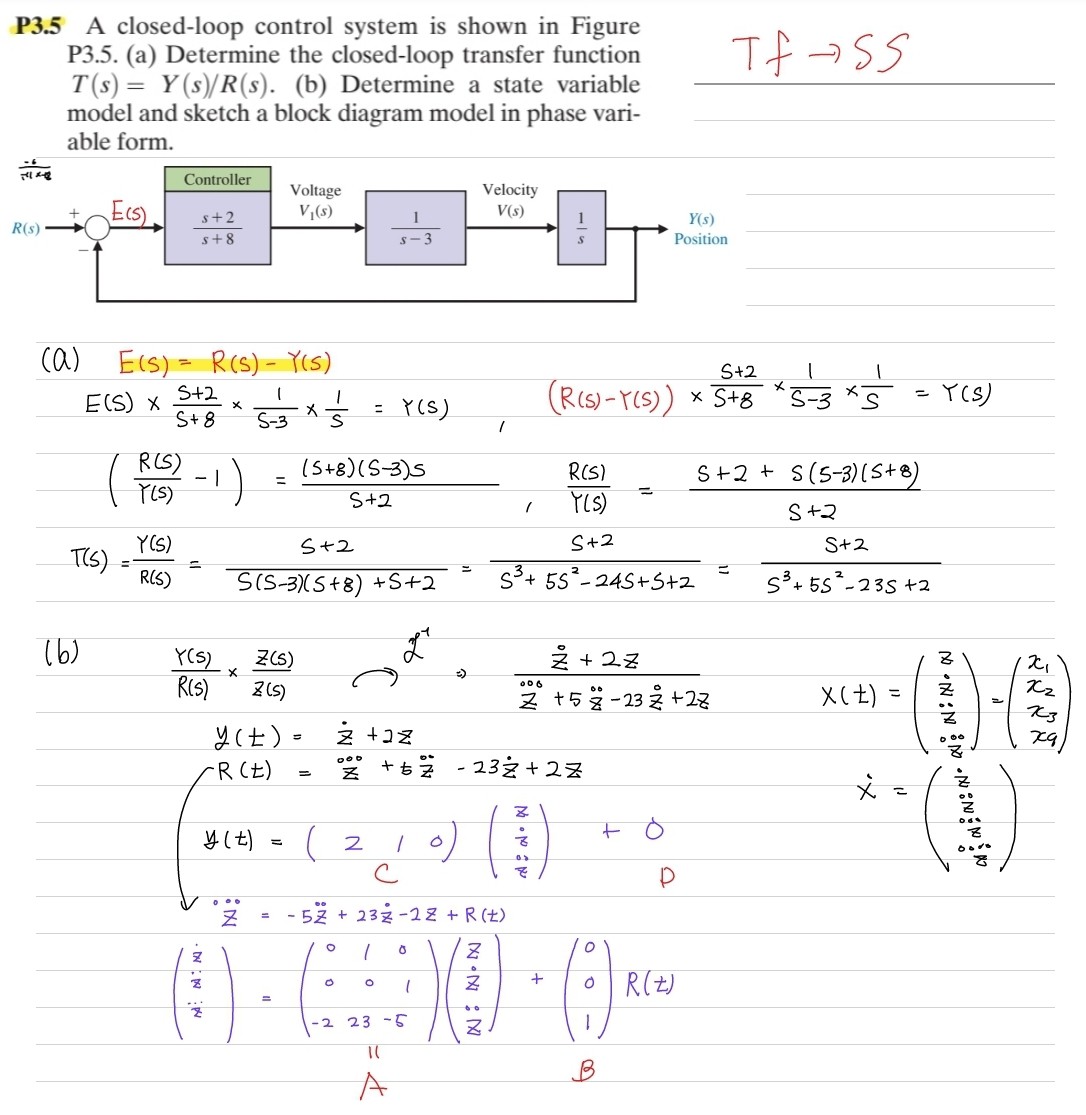 P3.5 A closed-loop control system is shown in Figure
P3.5. (a) Determine the closed-loop transfer function
T(s) = Y(s)/R(s). (b) Determine a state variable
model and sketch a block diagram model in phase vari-
able form.
Tf → SS
Controller
Voltage
V₁(s)
Velocity
V(s)
R(s)
+
−
E(s)
s+2
s+8
1
s−3
1
s
Y(s)
Position
(a) E(s) = R(s) - Y(s)
E(s) × (s+2)/(s+8) × 1/(s-3) × 1/s = Y(s) , (R(s)-Y(s)) × (s+2)/(s+8) × 1/(s-3) × 1/s = Y(s)
( R(s)/Y(s) - 1 ) = (s+8)(s-3)s / (s+2) , R(s)/Y(s) = (s+2 + s(s-3)(s+8)) / (s+2)
T(s) = Y(s)/R(s) = (s+2) / (s(s-3)(s+8) + s+2) = (s+2) / (s³+5s²-24s+s+2) = (s+2) / (s³+5s²-23s+2)
(b) Y(s)/R(s) × Z(s)/Z(s) ℒ⁻¹ ⇒ (ż + 2z) / (z⃛ + 5z̈ - 23ż + 2z)
X(t) = (z ż z̈ z⃛) = (x₁ x₂ x₃ x₄)
y(t) = ż + 2z
R(t) = z⃛ + 5z̈ - 23ż + 2z
ẋ = (ż z̈ z⃛ z⃜)
y(t) = ( 2 1 0 ) (z ż z̈) + 0
C D
z⃛ = -5z̈ + 23ż - 2z + R(t)
(ż z̈ z⃛) = (0 1 0 0 0 1 -2 23 -5) (z ż z̈) + (0 0 1) R(t)
= A B